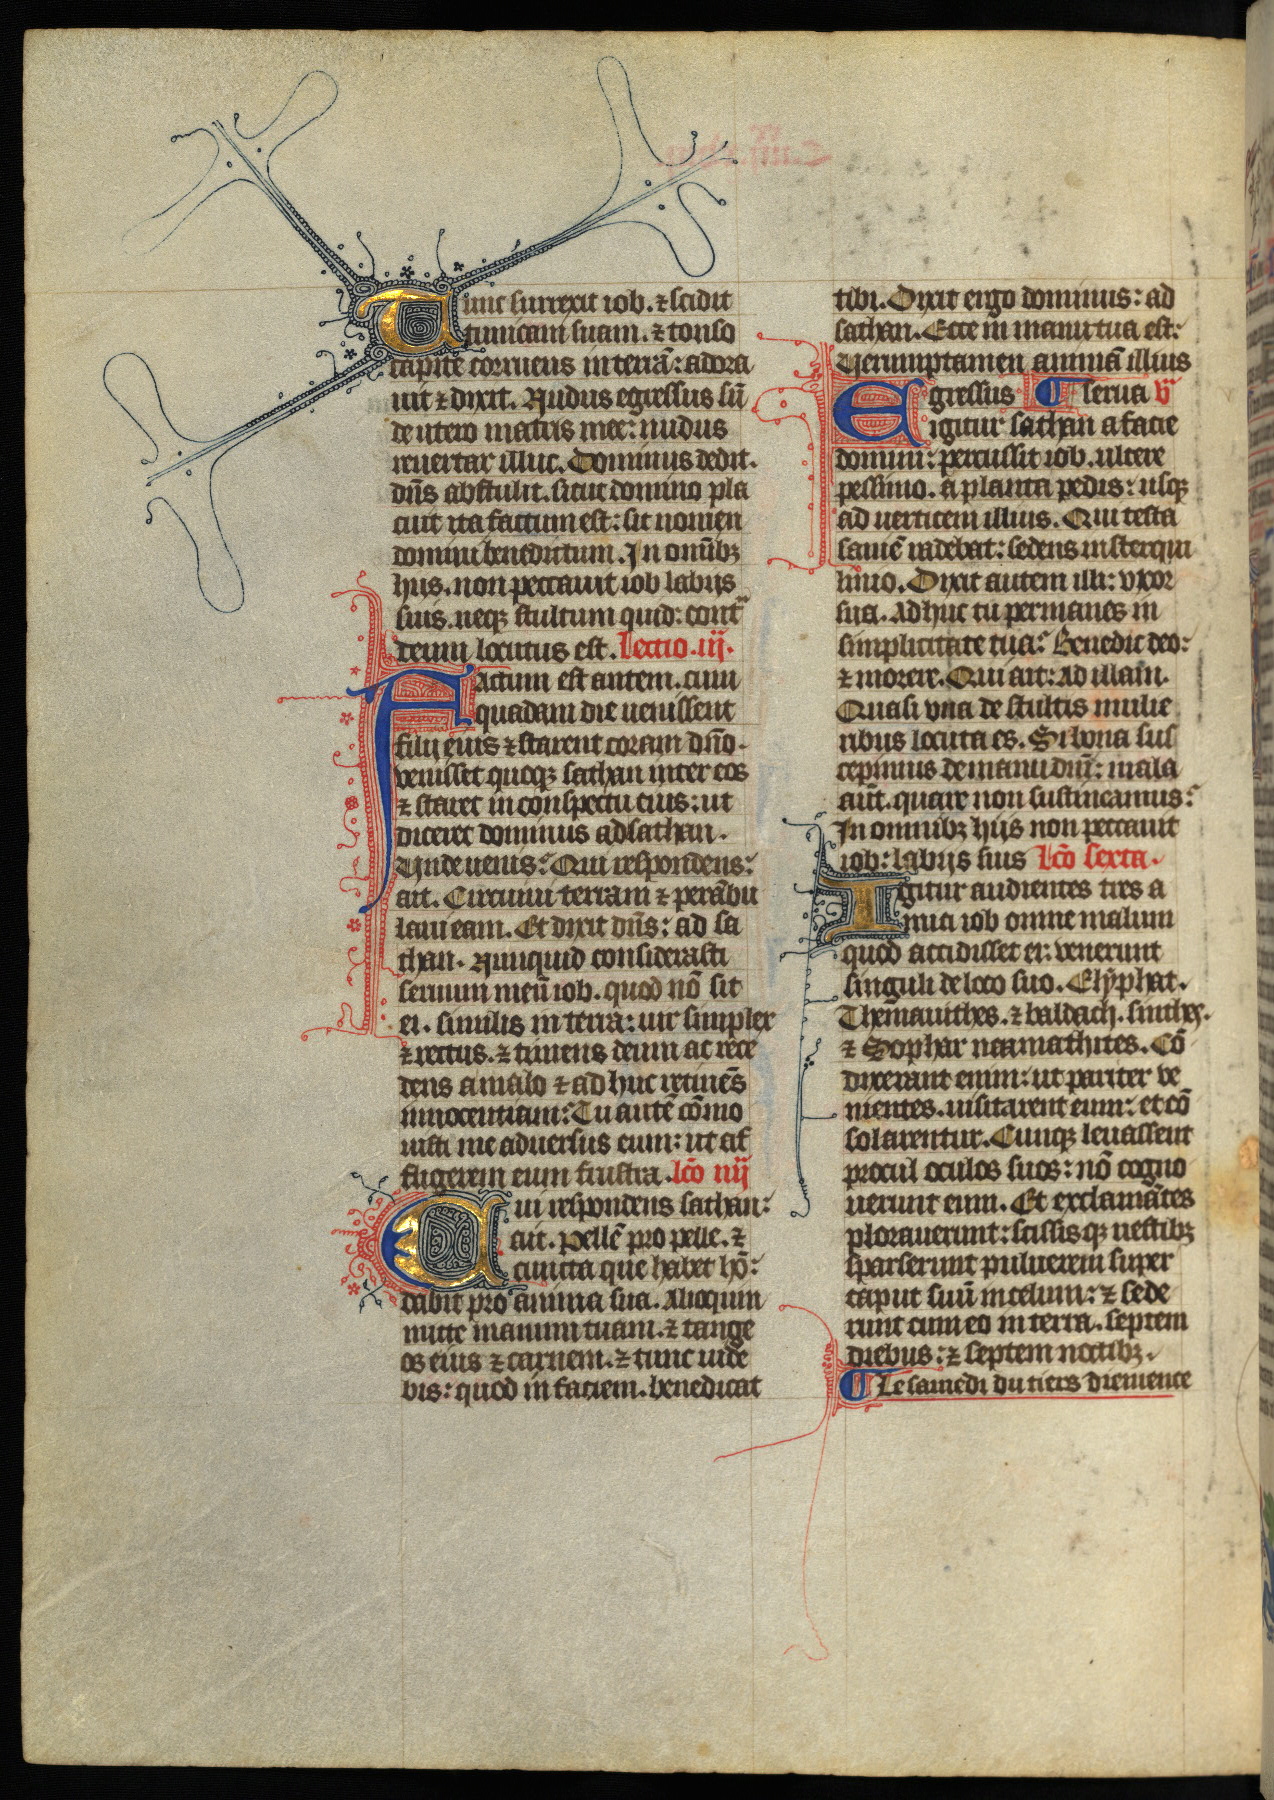 Tunc surrexit iob. ⁊ scidit
tunicam suam. ⁊ tonso
capite corruens in terrā: adora
uit ⁊ dixit. Nudus egressus sū
de utero matris mee: nudus
reuertar illuc. Dominus dedit.
dn̄s abstulit. sicut domino pla
cuit ita factum est: sit nomen
domini benedictum. In omībꝫ
hijs. non peccauit iob labijs
suis. neqꝫ stultum quid: contᵃ
deum locutus est. Lectio .iij.
Factum est autem. cum
quadam die uenissent
filij eius ⁊ starent coram dn̄o.
venisset quoqꝫ sathan inter eos
⁊ staret in conspectu eius: ut
diceret dominus ad sathan.
Unde uenis: Qui respondens:
ait. Circuiui terram ⁊ perābu
laui eam. Et dixit dn̄s: ad sa
than. Nunquid considerasti
seruum meū iob. quod nō sit
ei. similis in terra: uir simplex
⁊ rectus. ⁊ timens deum ac rece
dens a malo ⁊ ad huc retinēs
innocentiam: Tu autē cōmo
uisti me aduersus eum: ut af
fligerem eum frustra. lc̄o iiij
Cui respondens sathan:
ait. Pellē pro pelle. ⁊
cuncta que habet hō:
dabit pro anima sua. Alioquin
mitte manum tuam. ⁊ tange
os eius ⁊ carnem. ⁊ tunc uide
bis: quod in faciem. benedicat
tibi. Dixit ergo dominus: ad
sathan. Ecce in manu tua est:
Uerumptamen animā illius
Egressus ¶ serua v
igitur sathan a facie
domini: percussit iob. ulcere
pessimo. a planta pedis: usqꝫ
ad uerticem illius. Qui testa
saniē radebat: sedens in sterqui
linio. Dixit autem illi: vxor
sua. Adhuc tu permanes in
simplicitate tua: Benedic deo:
⁊ morere. Qui ait: Ad illam.
Quasi vna de stultis mulie
ribus locuta es. Si bona sus
cepimus de manu dn̄i: mala
aūt. quare non sustineamus:
In omnibꝫ hijs non peccauit
iob: labijs suis lc̄o sexta.
Igitur audientes tres a
mici iob omne malum
quod accidisset ei: venerunt
singuli de loco suo. Elyphat.
Themanithes. ⁊ baldach. suithes.
⁊ Sophar naamathites. Cō
dixerant enim: ut pariter ve
nientes. uisitarent eum: et cō
solarentur. Cumqꝫ leuassent
procul oculos suos: nō cogno
uerunt eum. Et exclamātes
plorauerunt: scissisqꝫ uestibꝫ
sparserunt puluerem super
caput suū in celum: ⁊ sede
runt cum eo in terra. septem
diebus: ⁊ septem noctibꝫ.
¶ Le samedi du tiers diemence